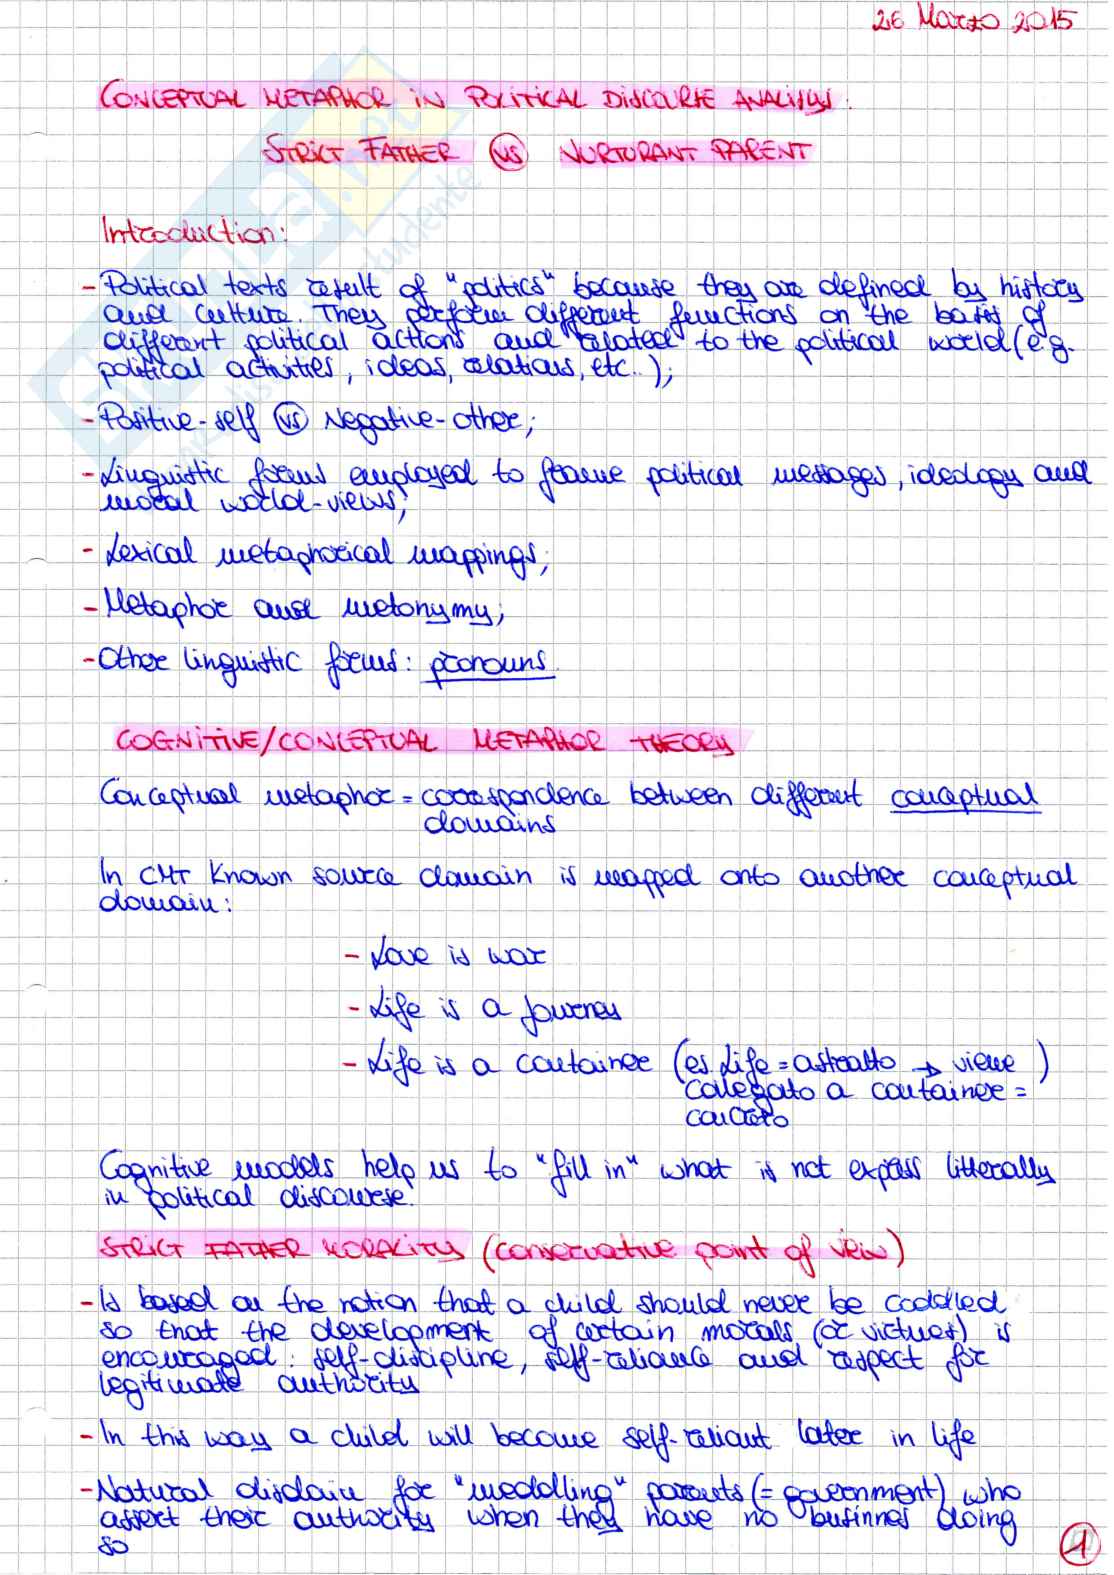 26 Marzo 2015
CONCEPTUAL METAPHOR IN POLITICAL DISCOURSE ANALISYS:
STRICT FATHER VS NURTURANT PARENT
Introduction:
- Political texts result of "politics" because they are defined by history
and culture. They perform different functions on the basis of
different political actions and related to the political world (e.g.
political activities, ideas, relations, etc..);
- Positive-self VS Negative-other;
- Linguistic forms employed to frame political messages, ideology and
moral world-views;
- Lexical metaphorical mappings;
- Metaphor and metonymy;
- Other linguistic forms: pronouns.
COGNITIVE/CONCEPTUAL METAPHOR THEORY
Conceptual metaphor = correspondence between different conceptual
domains
In CMT known source domain is mapped onto another conceptual
domain:
- Love is war
- Life is a journey
- Life is a container (es. Life = astratto → viene )
collegato a container =
concreto
Cognitive models help us to "fill in" what is not express litterally
in political discourse.
STRICT FATHER MORALITY (conservative point of veiw)
- Is based on the notion that a child should never be coddled
so that the development of certain morals (or virtues) is
encouraged: self-discipline, self-reliance and respect for
legitimate authority
- In this way a child will become self-reliant later in life
- Natural disdain for "meddling" parents (= government) who
assert their authority when they have no businnes doing
so
1